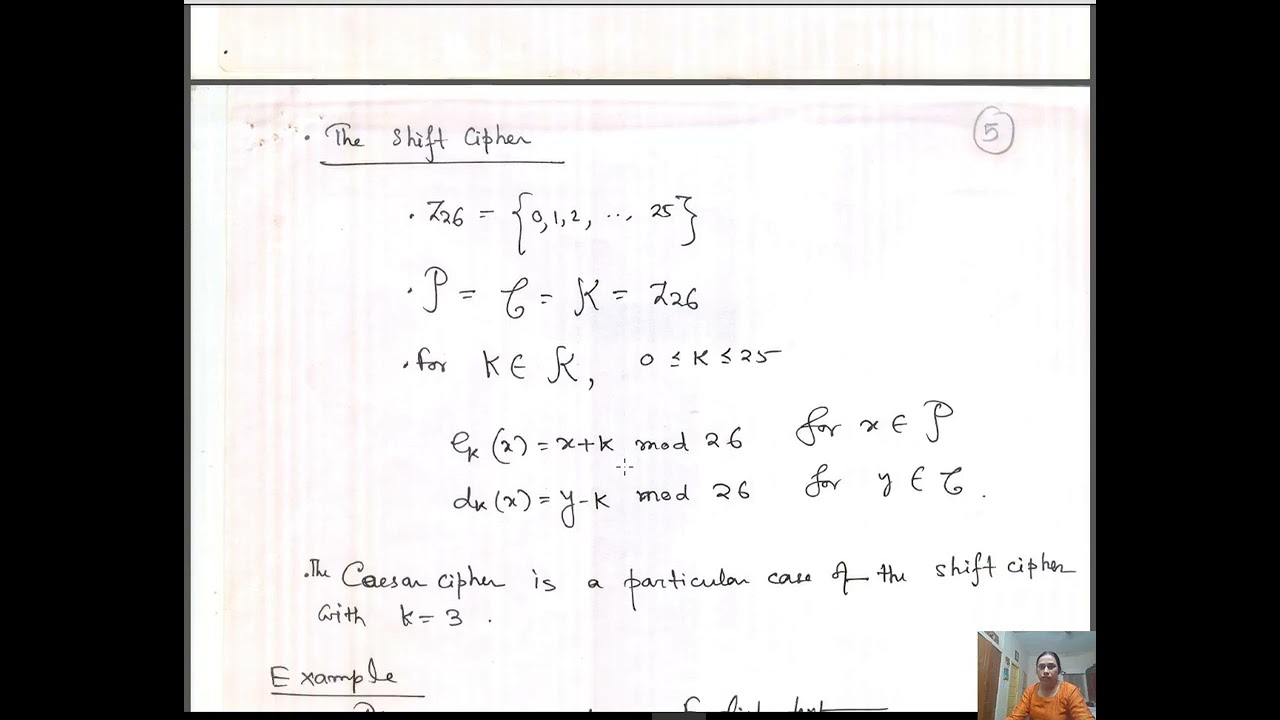 5
• The Shift Cipher
• Z26 = {0,1,2, ..., 25}
• P = C = K = Z26
• for K ∈ K, 0 ≤ K ≤ 25
eK (x) = x+K mod 26 for x ∈ P
dK (x) = y-K mod 26 for y ∈ C .
• The Caesar cipher is a particular case of the shift cipher
with K = 3 .
Example